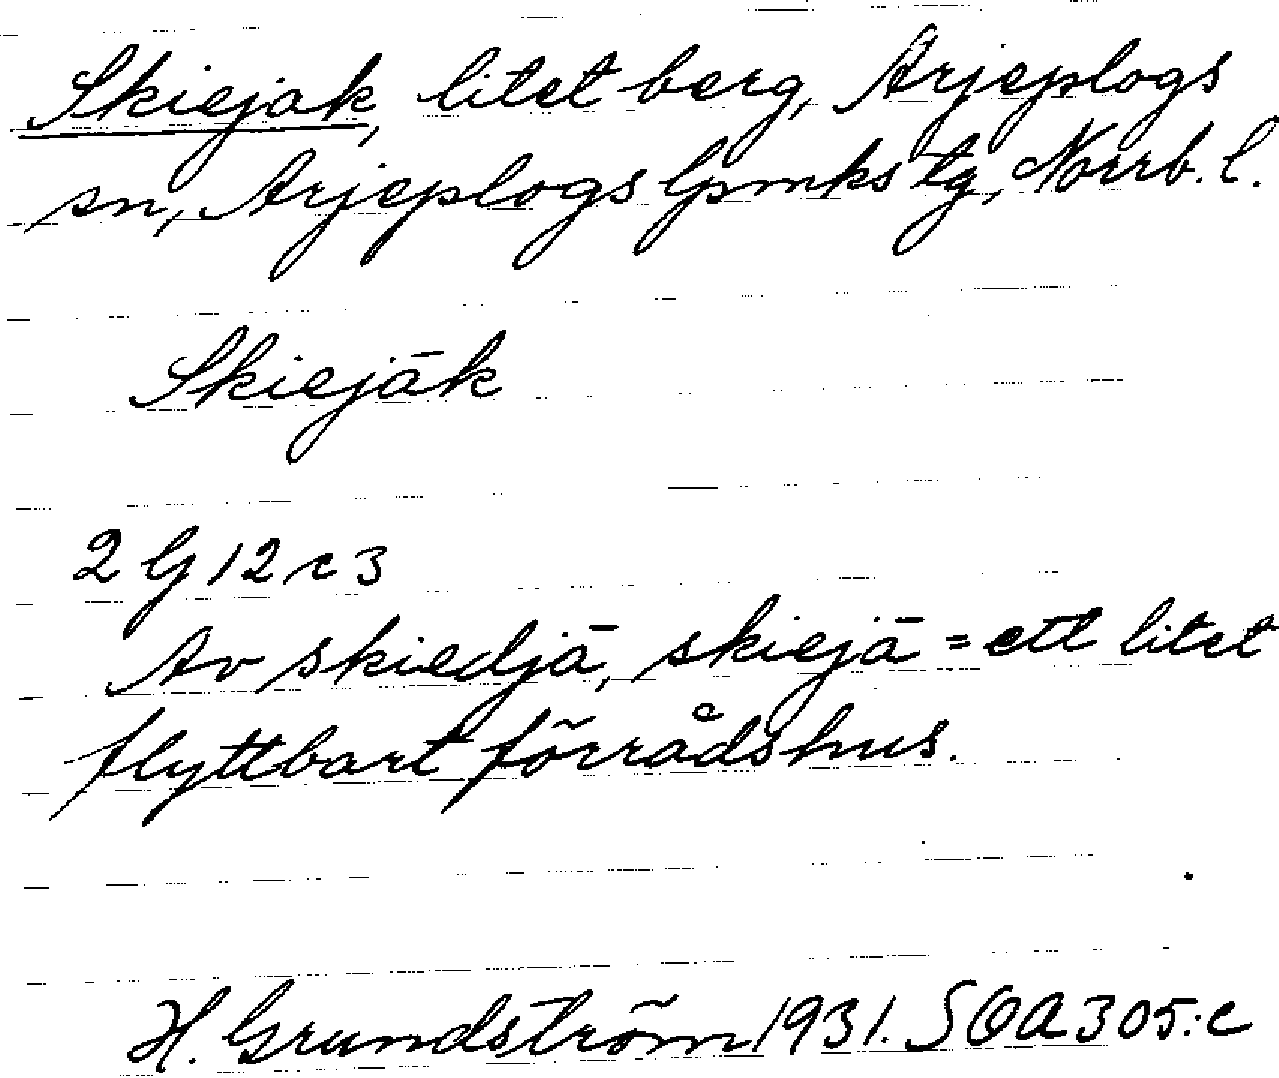 Skiejak, litet berg, Arjeplogs
sn, Arjeplogs lpmks tg, Norrb. l.
Skiejāk
2 G 12 c 3
Av skiedjā, skiejā = ett litet
flyttbart förrådshus.
H. Grundström 1931. SOA 305:c